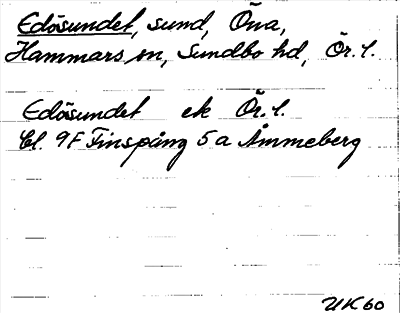 Edösundet, sund, Öna,
Hammars sn, Sundbo hd, Ör. l.
Edösundet ek Ör. l.
Bl. 9F Finspång 5a Åmmeberg
UK 60